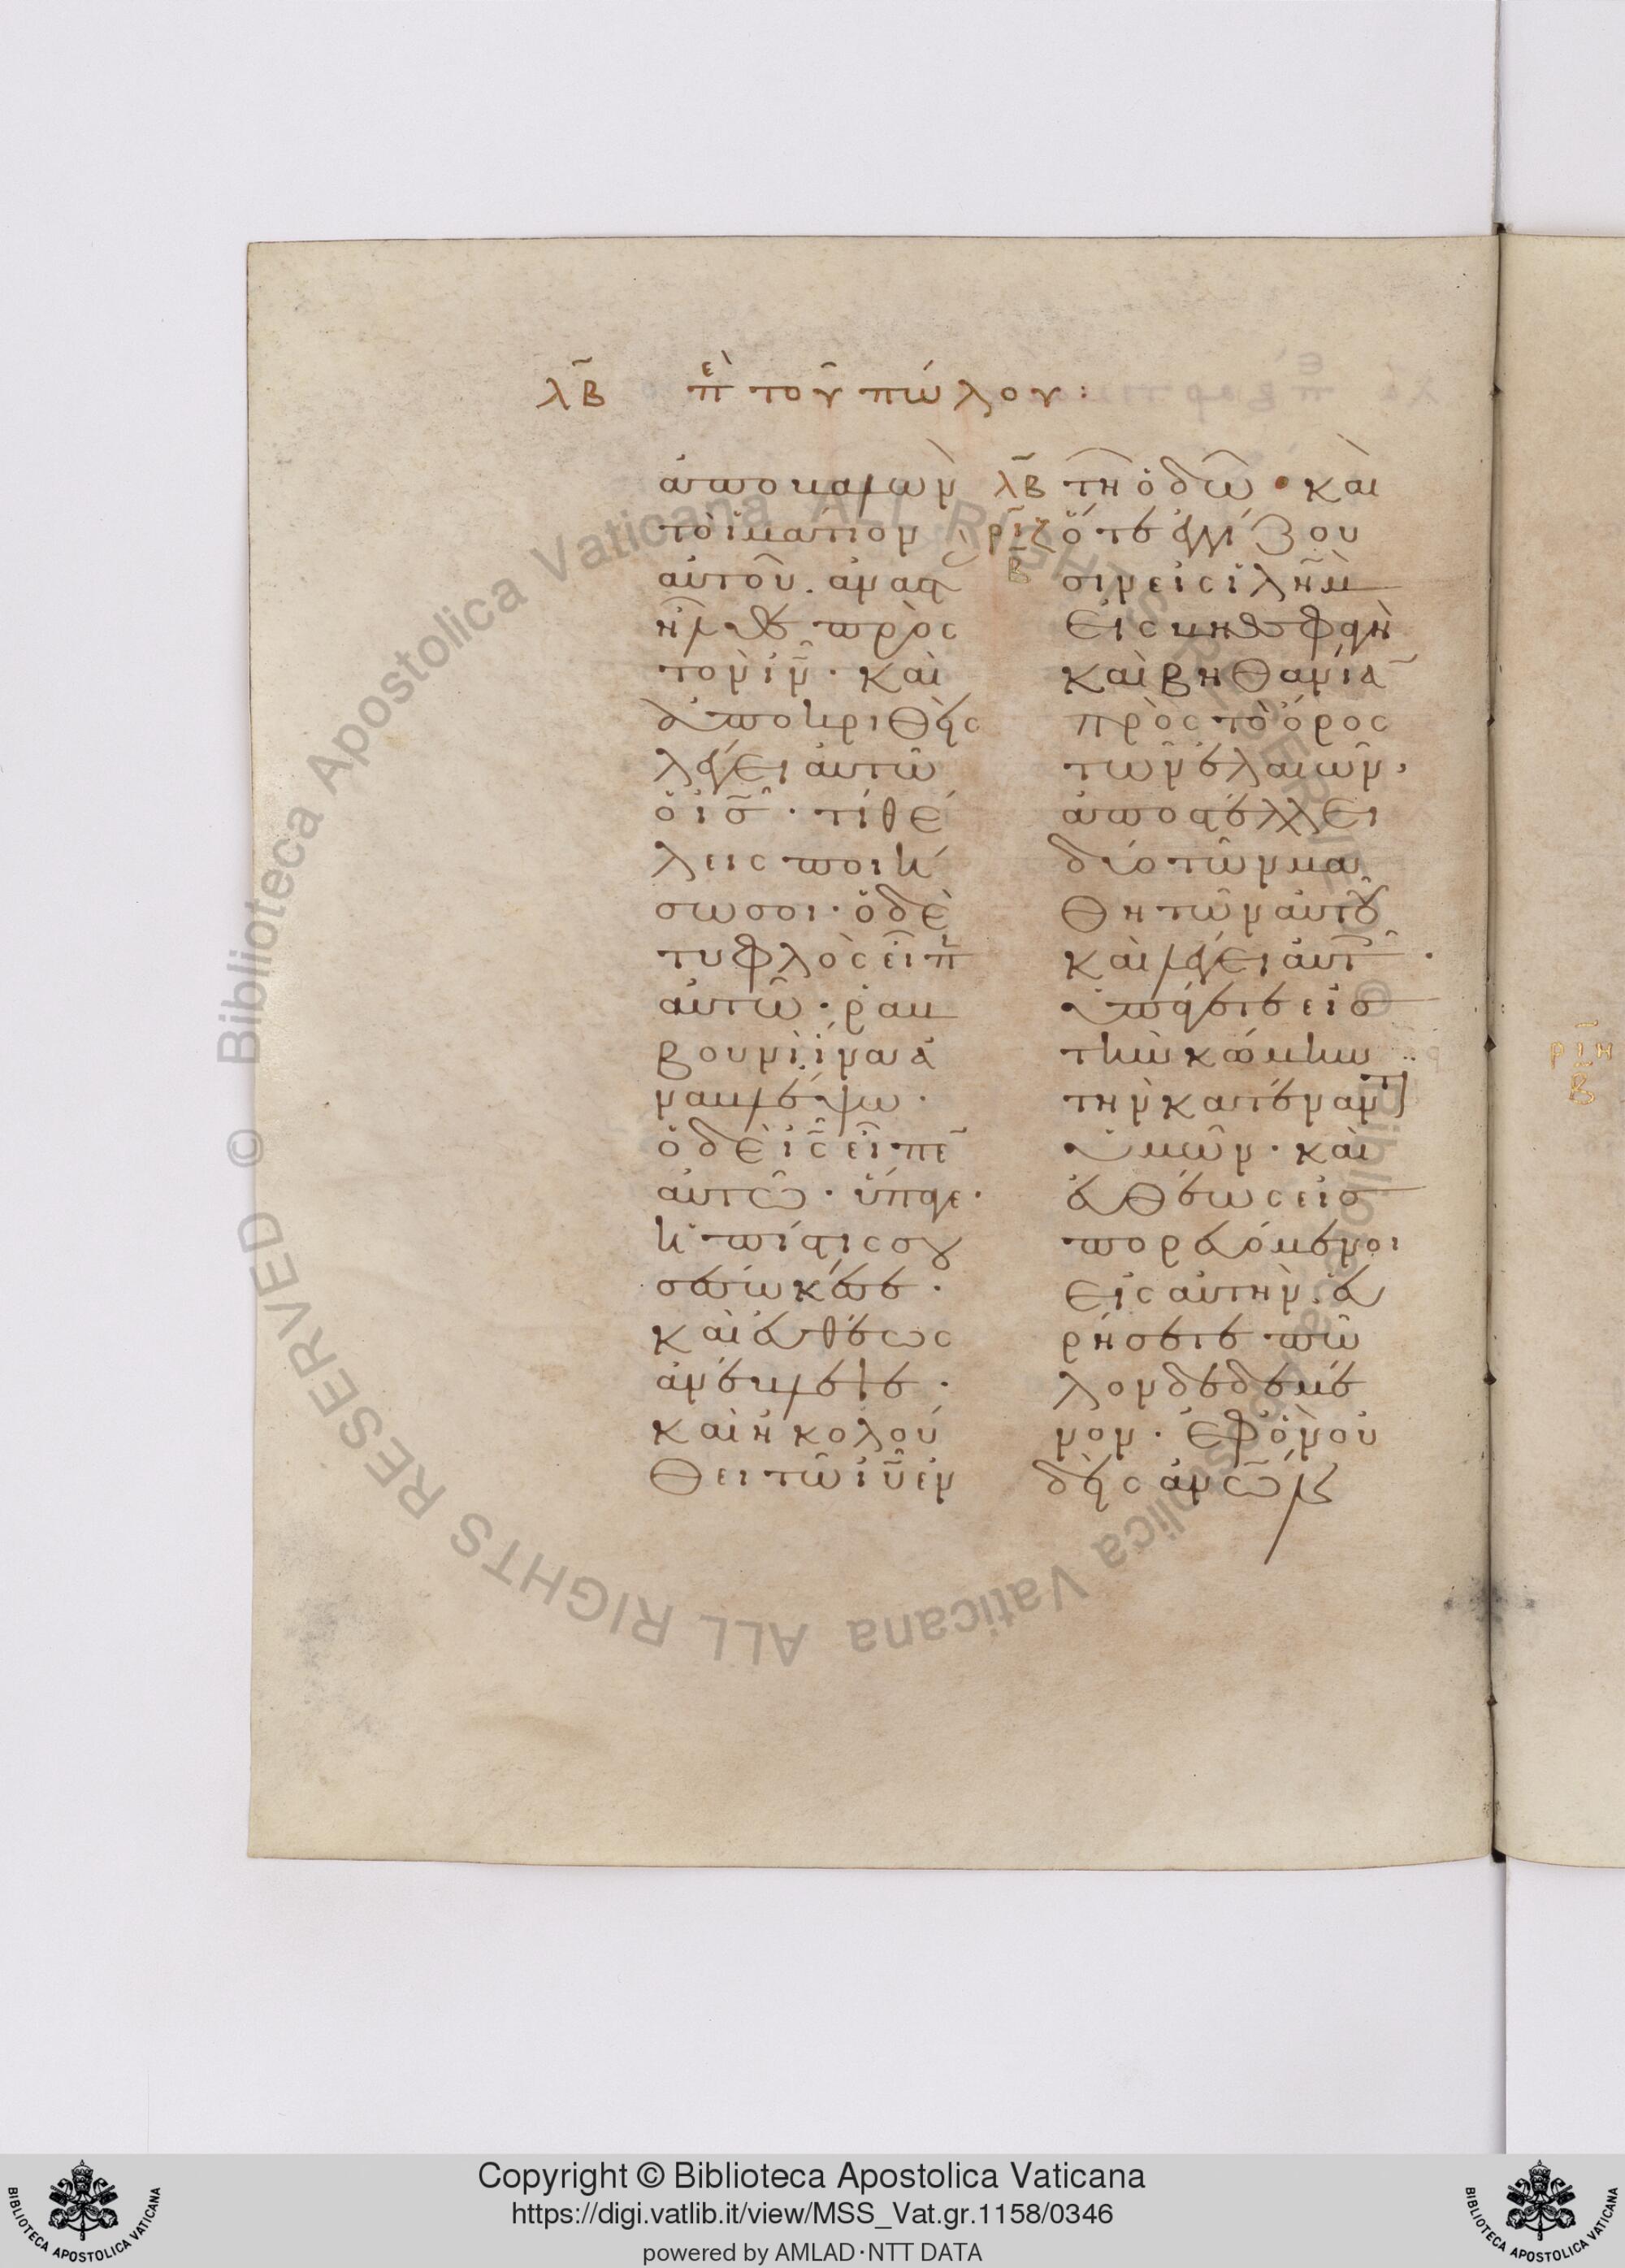 λβ̅ πὲ τοῦ πώλου:
ἀποβαλὼν
τὸ ἱμάτιον
αὐτοῦ. ἀναστ(ὰς)
ἦλθε πρὸς
τὸν ι̅ν̅· καὶ
ἀποκριθεὶς
λέγει αὐτῶ
ὁ ι̅σ̅· τί θέ
λεις ποιή
σω σοι· ὁ δὲ
τυφλὸς εἶπ
αὐτῶ· ραβ
βουνὶ ἵνα ἀ
ναβλέψω·
ὁ δὲ ι̅ς̅ εἶπε
αὐτῶ· ὕπαγε·
ἡ πίστις σου
σέσωκέ σε·
καὶ εὐθέως
ἀνέβλεψε·
καὶ ἠκολού
θει τῶ ι̅υ̅ ἐν
λβ̅
ρι̅ζ
β
τῆ ὁδῶ· καὶ
ὅτε ἐγγίζου
σιν εἰς ι̅λη̅μ
εἰς βηθσφαγὴ
καὶ βηθανία̅
πρὸς τὸ ὄρος
τῶν ἐλαιῶν,
ἀποστέλλει
δύο τῶν μα
θητῶν αὐτοῦ
καὶ λέγει αὐτ
ὑπάγετε εἰσ
τὴν κώμην
τὴν κατέναντι
ὑμῶν· καὶ
εὐθέως εἰσ
πορευόμενοι
εἰς αὐτὴν. εὑ
ρήσετε πῶ
λον δεδεμέ
νον· ἐφ' ὃν οὐ
δεὶς ἀν̅ω̅ν
ρι̅η
β
Copyright © Biblioteca Apostolica Vaticana
https://digi.vatlib.it/view/MSS_Vat.gr.1158/0346
powered by AMLAD·NTT DATA
BIBLIOTECA APOSTOLICA VATICANA
BIBLIOTECA APOSTOLICA VATICANA
© Biblioteca Apostolica Vaticana ALL RIGHTS RESERVED
© Biblioteca Apostolica Vaticana ALL RIGHTS RESERVED